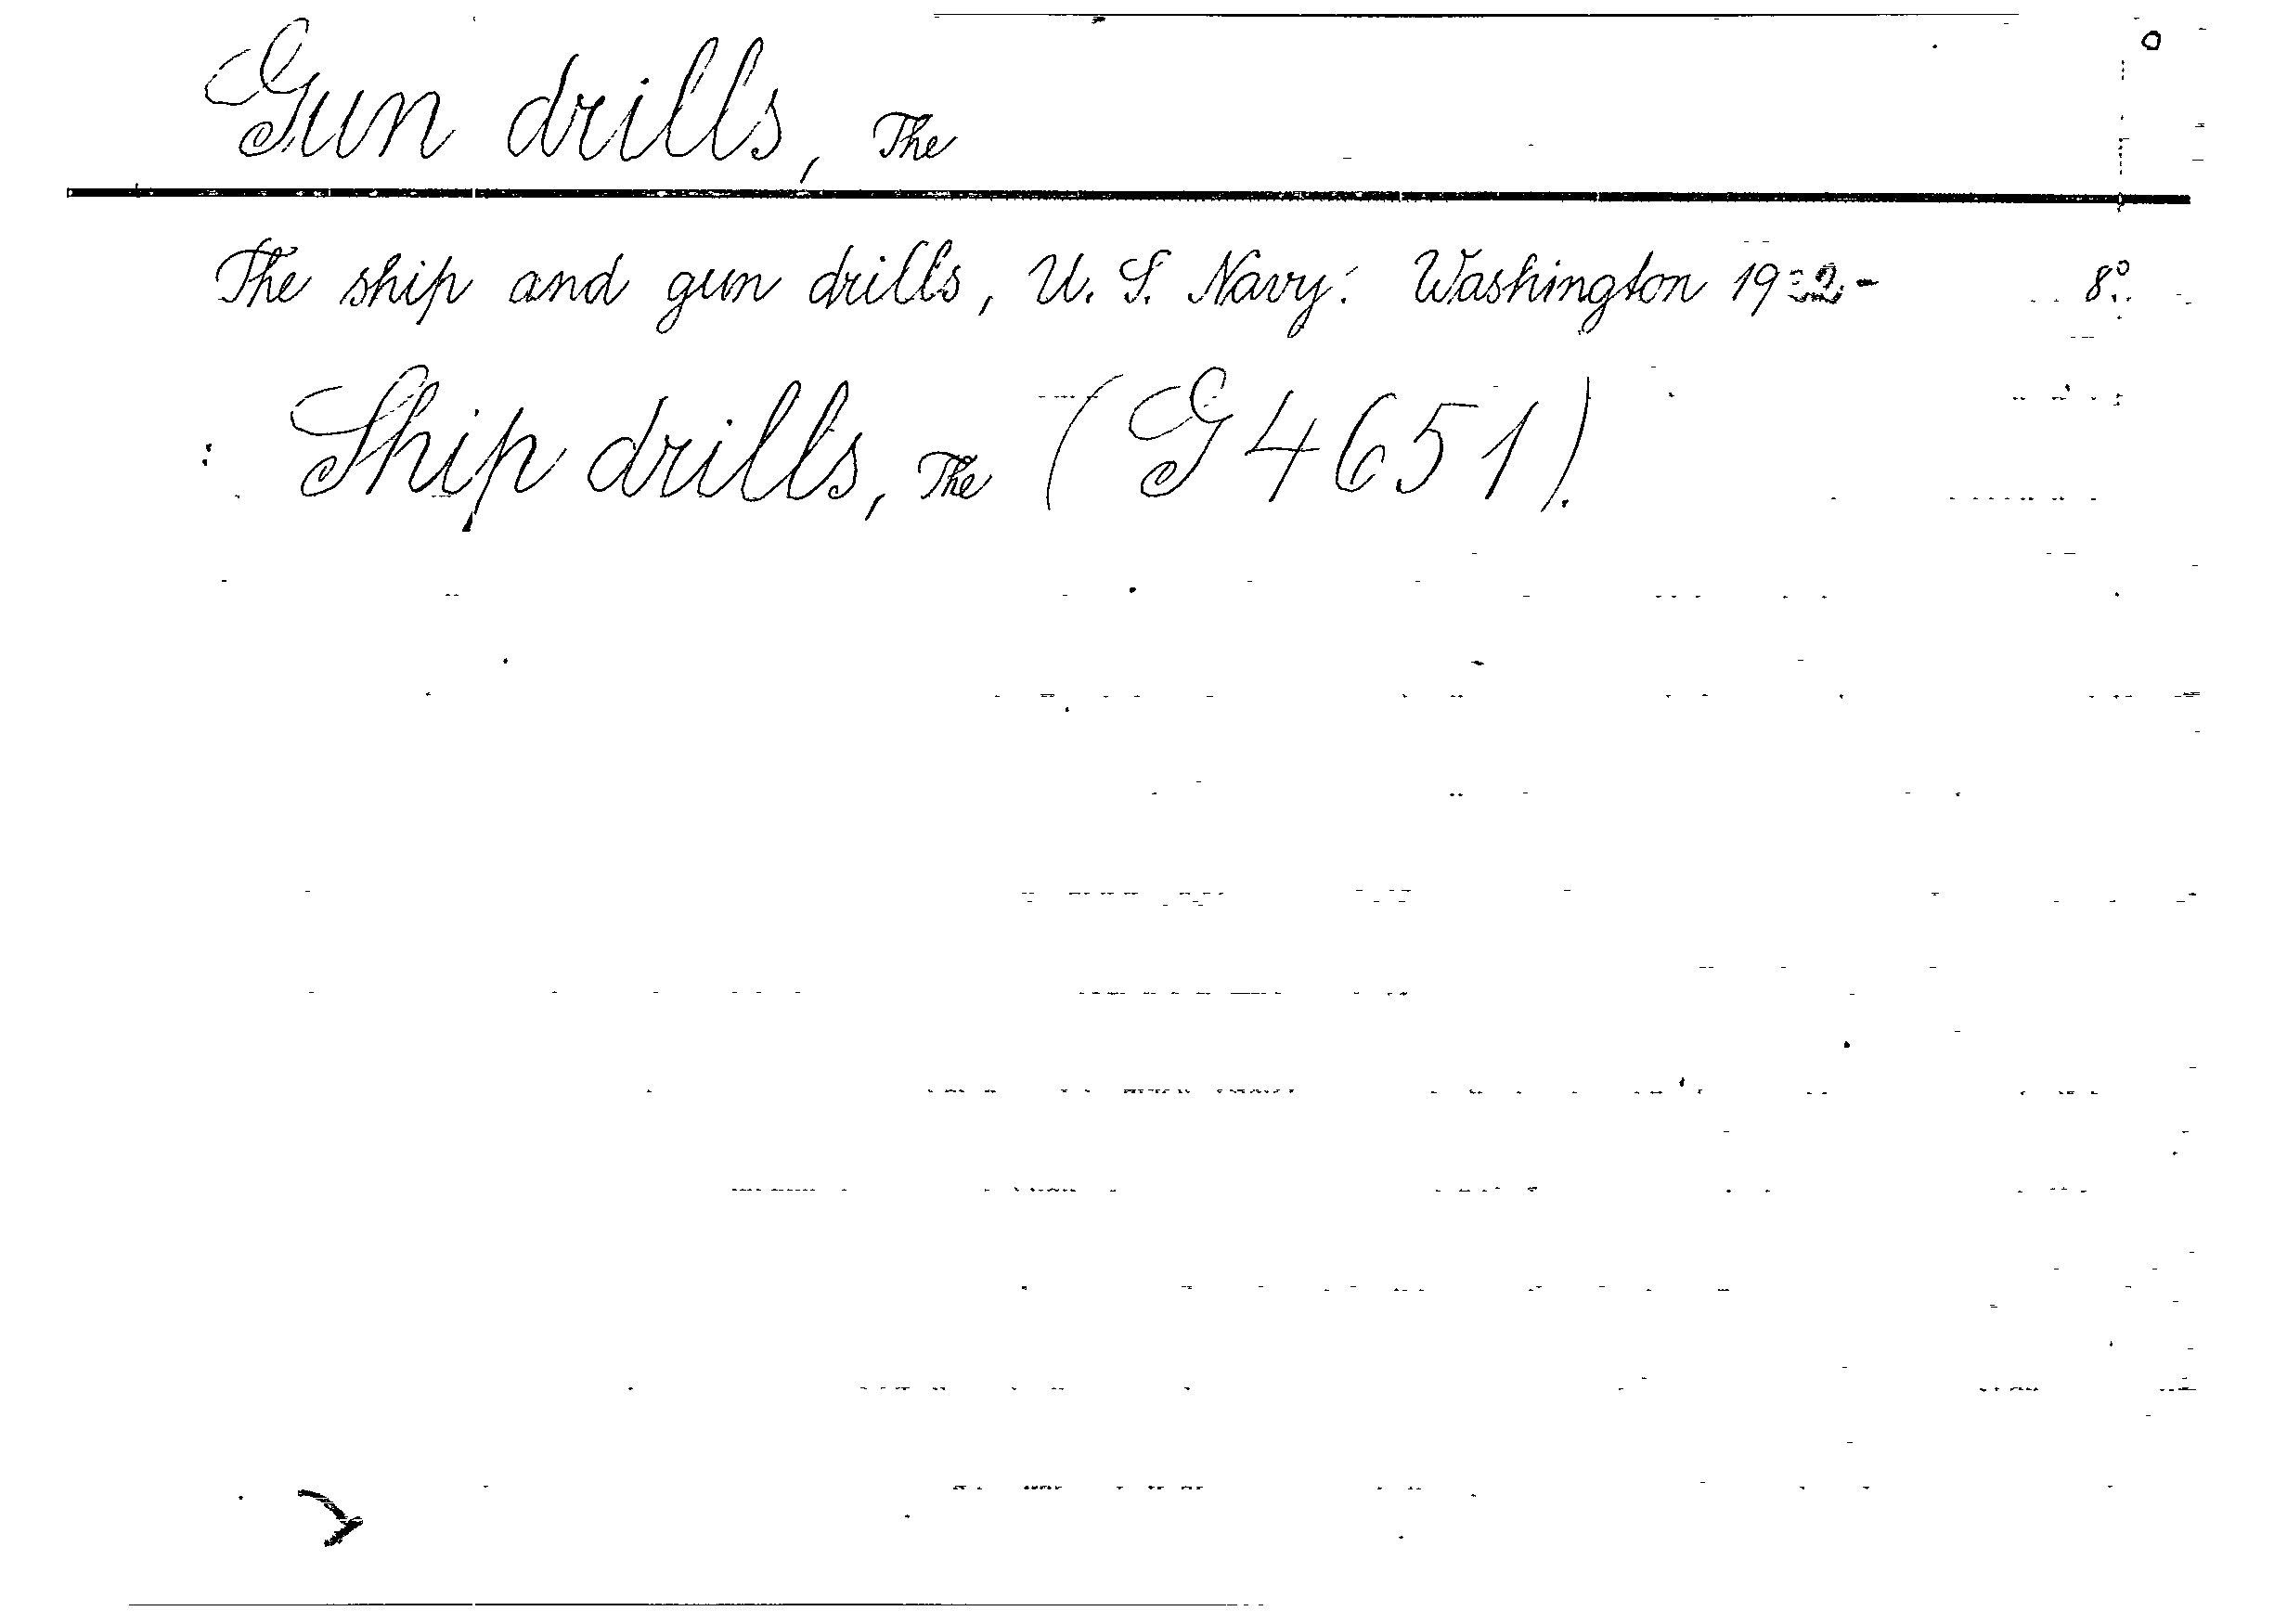 Gun drills, The
The ship and gun drills, U. S. Navy. Washington 8°.
: Ship drills, The (G 4651).